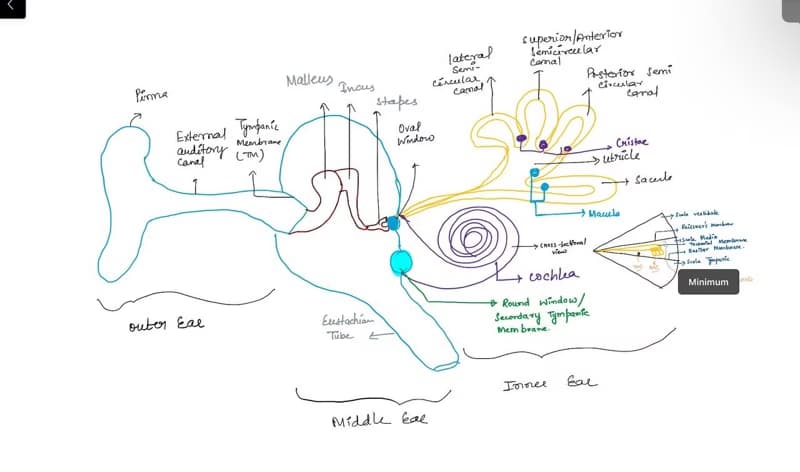 Pinna
External
auditory
canal
Tympanic
Membrane
(TM)
Malleus
Incus
stapes
Oval
Window
lateral
Semi-
circular
canal
Superior/Anterior
Semicircular
Canal
Posterior Semi
Circular
Canal
Cristae
Utricle
Saccule
Macula
cross-sectional
view
cochlea
Round Window/
Secondary Tympanic
Membrane.
Scala vestibule
Reissner's membrane
Scala Media
Tectorial Membrane
Basilar Membrane.
Scala Tympanic
Minimum
Eustachian
Tube
outer Ear
Middle Ear
Inner Ear